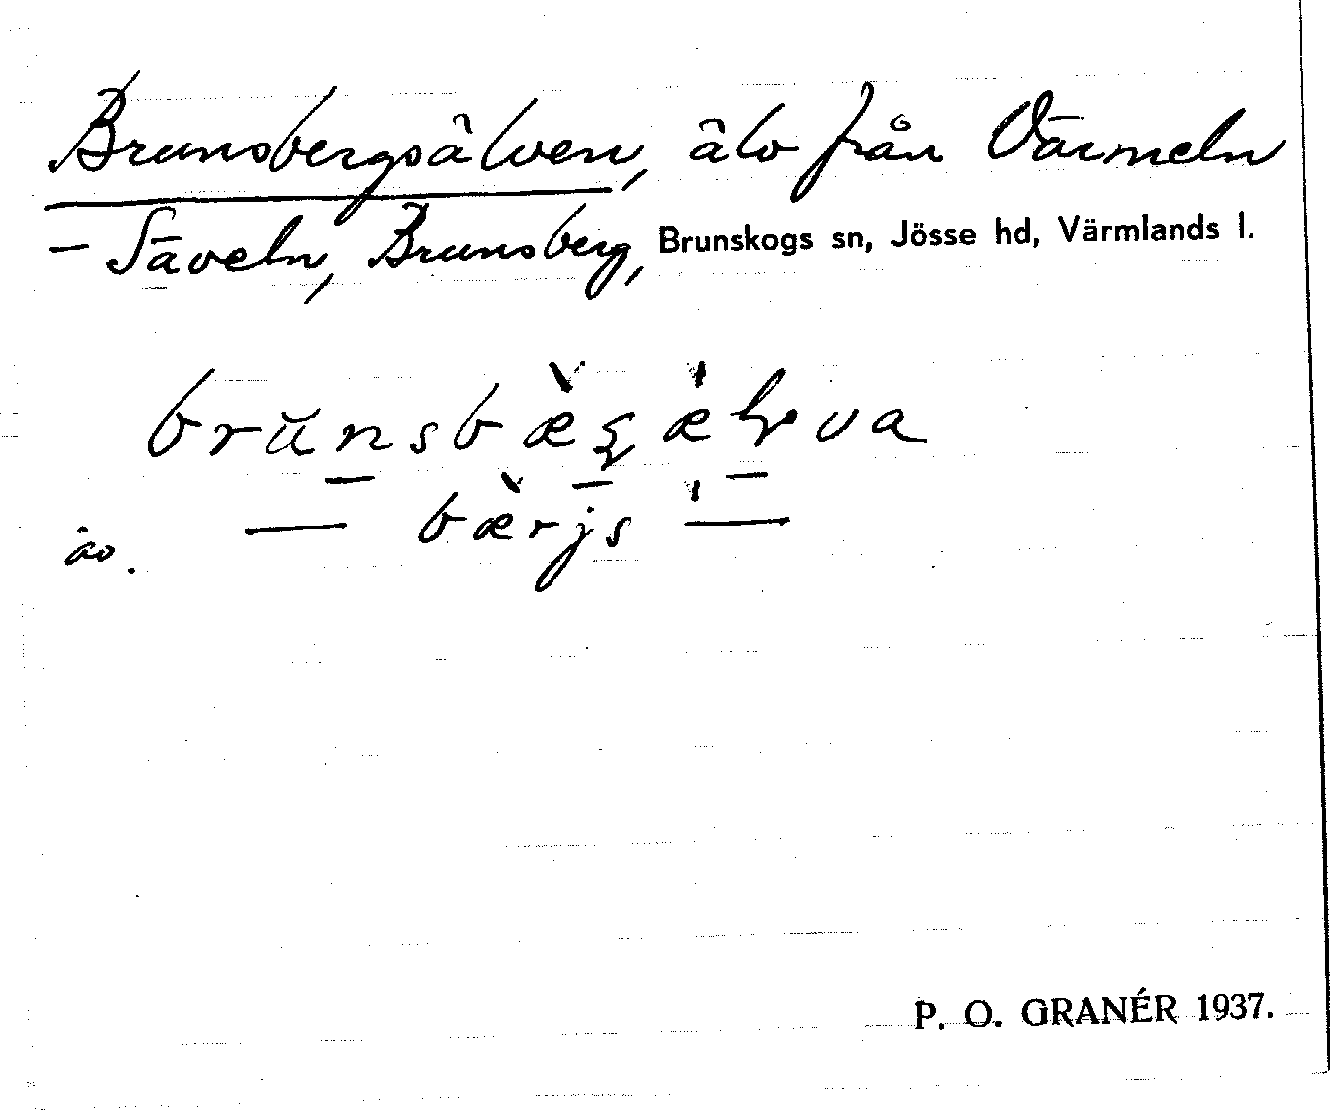 Brunsbergsälven, älv från Värmeln
– Säveln, Brunsberg, Brunskogs sn, Jösse hd, Värmlands l.
äv. — bæ̀rjs —
P. O. GRANÉR 1937.